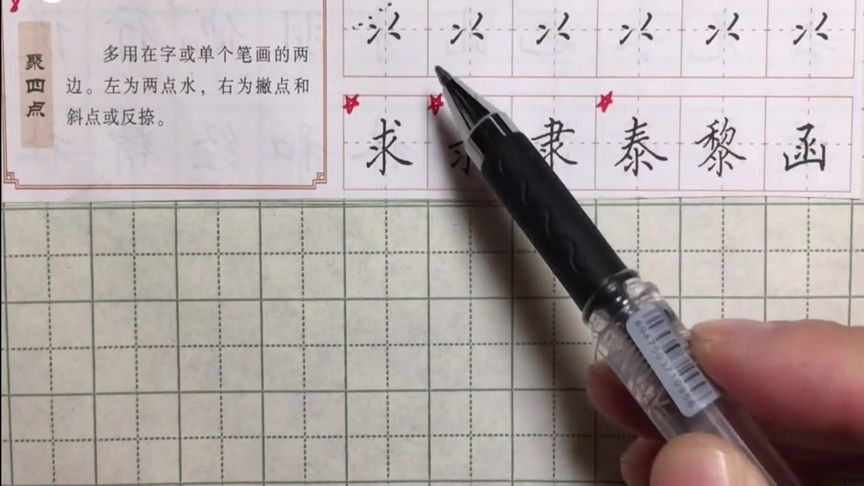 聚四点
多用在字或单个笔画的两
边。左为两点水，右为撇点和
斜点或反捺。
求 隶 泰 黎 函